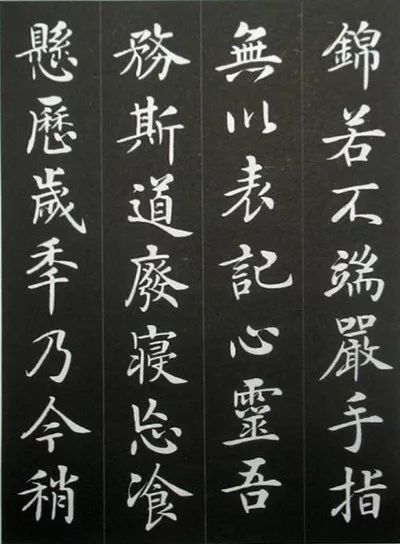 錦若不端嚴手指
無以表記心靈吾
務斯道廢寢忘飡
懸歷歲季乃今稍